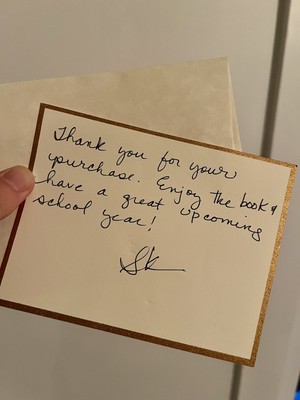 Thank you for your
purchase! Enjoy the book &
have a great upcoming
school year!
Sk